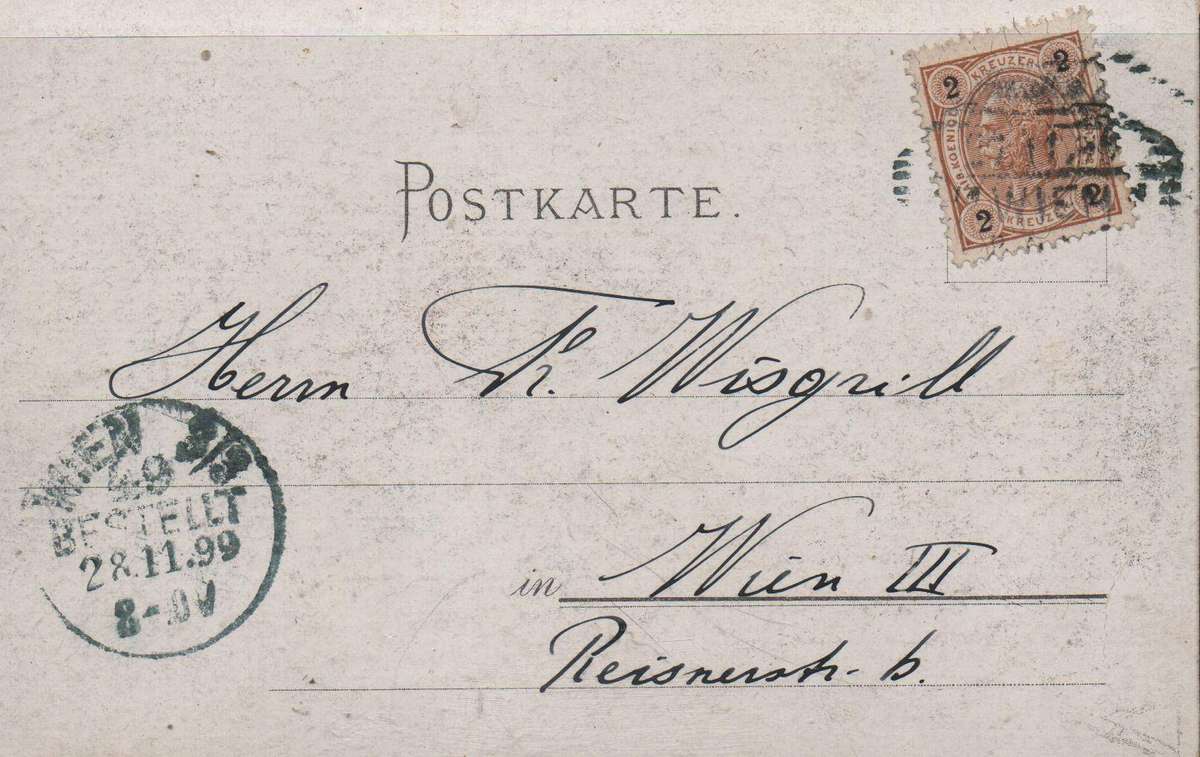 2 KREUZER 2
2 KREUZER 2
POSTKARTE.
Herrn Fr. Wisgrill
WIEN 3/3
49
BESTELLT
28.11.99
8-
in Wien III
Reisnerstr. 6.